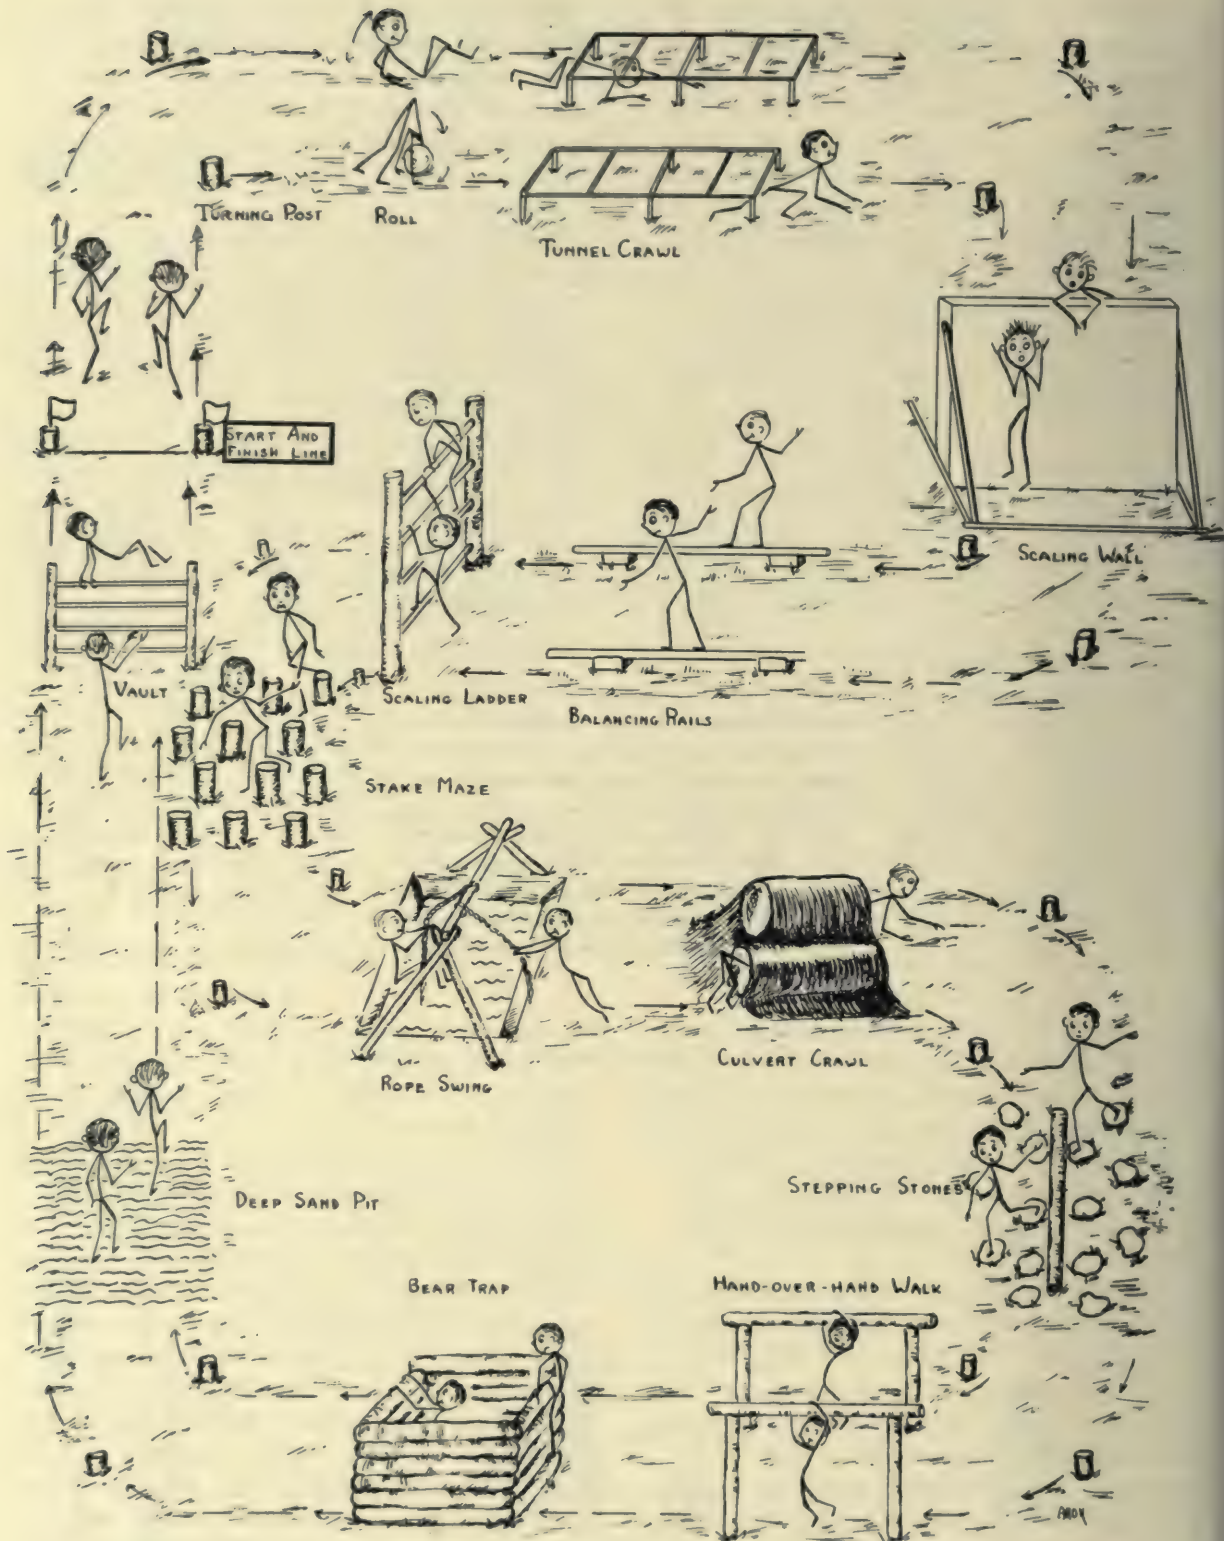 TURNING POST
ROLL
TUNNEL CRAWL
START AND
FINISH LINE
SCALING WALL
VAULT
SCALING LADDER
BALANCING RAILS
STAKE MAZE
ROPE SWING
CULVERT CRAWL
STEPPING STONES
DEEP SAND PIT
BEAR TRAP
HAND-OVER-HAND WALK